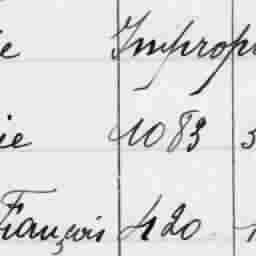 ie Improp
ie 1083 3
François 420 1